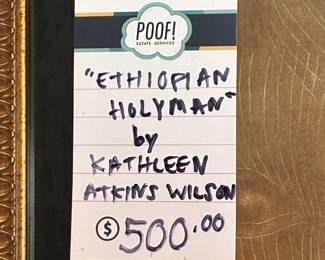 POOF!
ESTATE SERVICES
"ETHIOPIAN
HOLYMAN"
by
KATHLEEN
ATKINS WILSON
$ 500.00